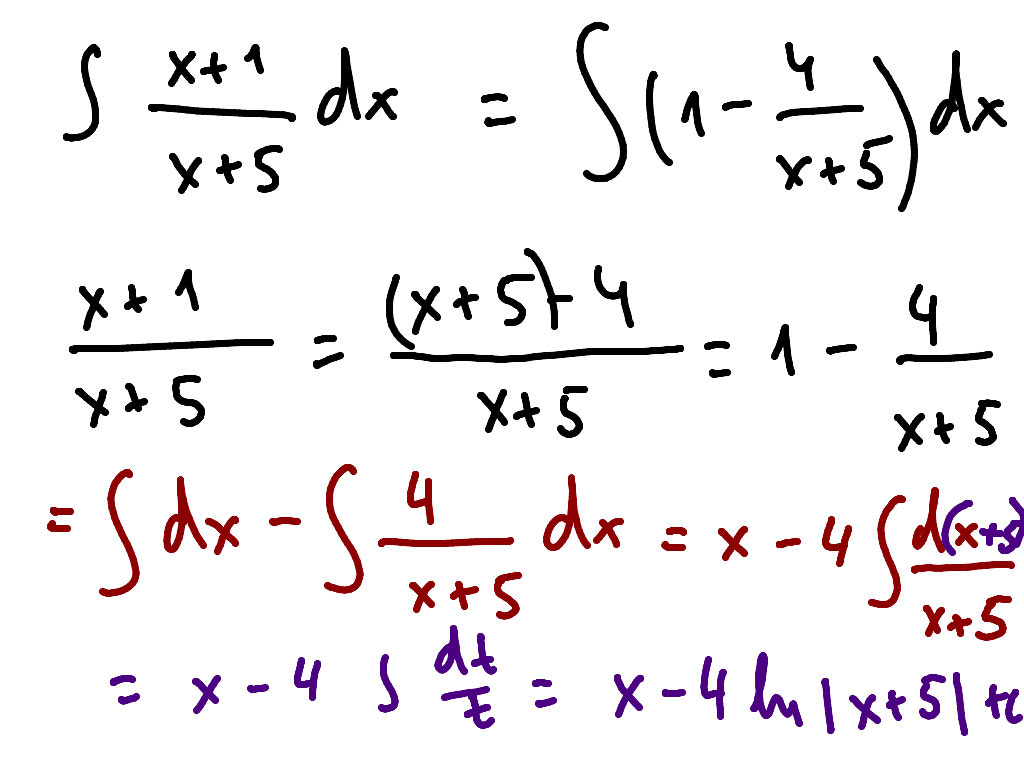 ∫ (x+1)/(x+5) dx = ∫ (1 - 4/(x+5)) dx
(x+1)/(x+5) = ((x+5)-4)/(x+5) = 1 - 4/(x+5)
= ∫ dx - ∫ 4/(x+5) dx = x - 4 ∫ d(x+5)/(x+5)
= x - 4 ∫ dt/t = x - 4 ln |x+5| + c